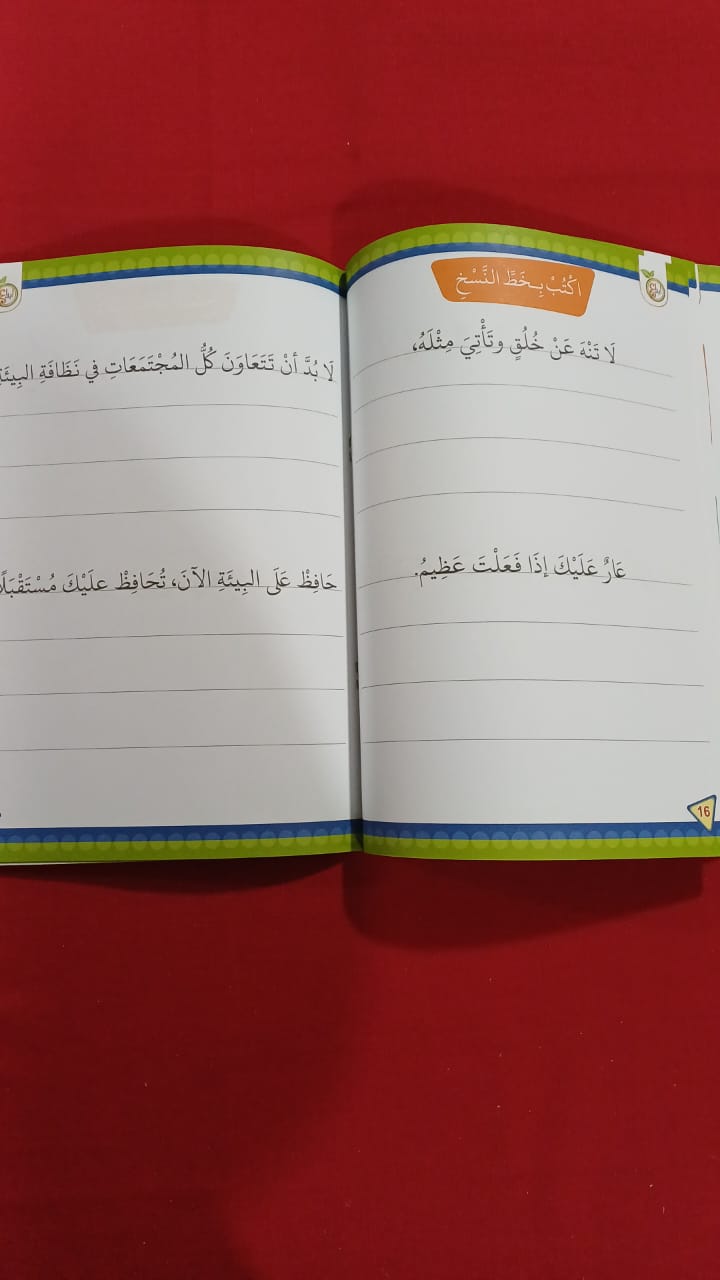 اكْتُبْ بِخَطِّ النَّسْخِ
لَا تَنْهَ عَنْ خُلُقٍ وتَأْتِيَ مِثْلَهُ،
عَارٌ عَلَيْكَ إذَا فَعَلْتَ عَظِيمُ.
16
لَا بُدَّ أنْ تَتَعَاوَنَ كُلُّ المُجْتَمَعَاتِ في نَظَافَةِ البِيئَةِ
حَافِظْ عَلَى البِيئَةِ الآنَ، تُحَافِظْ علَيْكَ مُسْتَقْبَلًا